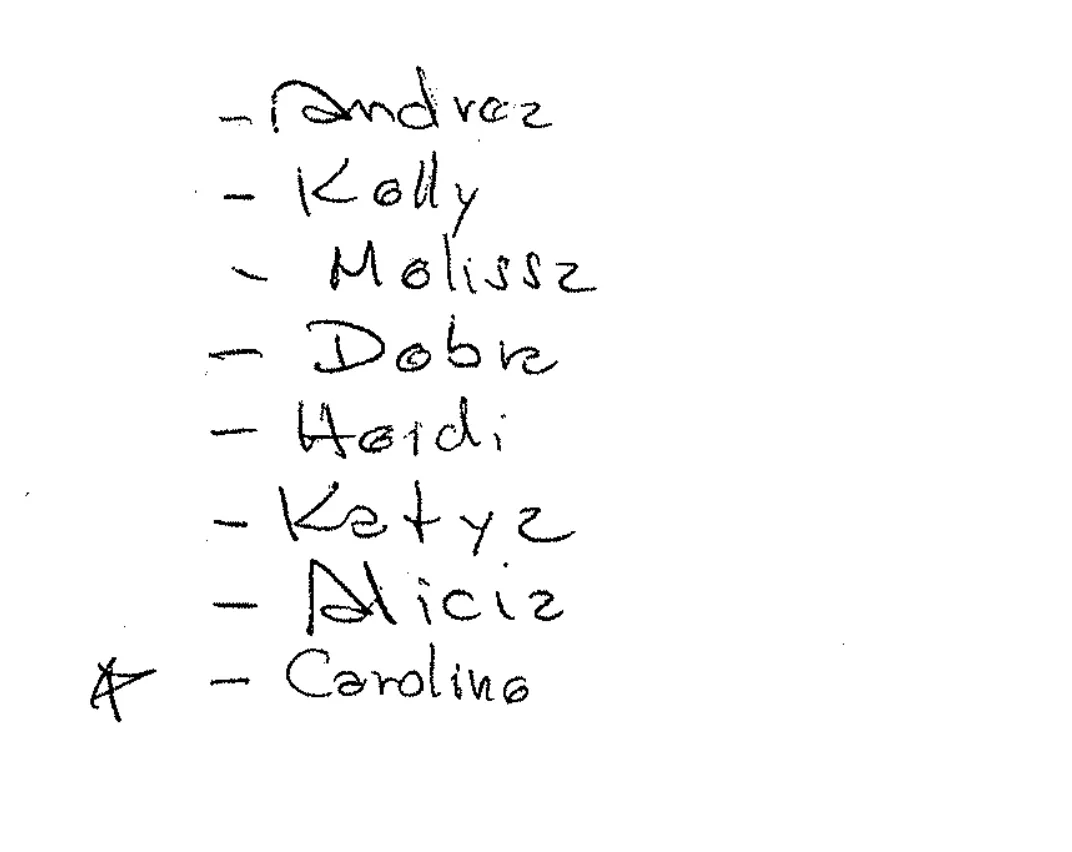 - Andrea
- Kelly
- Melissa
- Debra
- Heidi
- Katya
- Alicia
☆ - Caroline